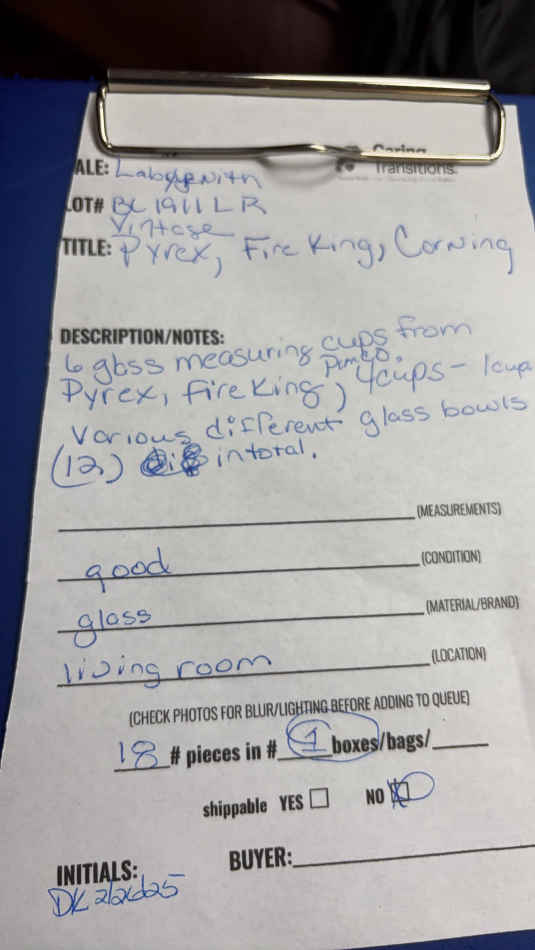 Caring
Transitions.
ALE: Labyrnith
LOT# BC 1911 L R
Vintage
TITLE: Pyrex, Fire King, Corning
DESCRIPTION/NOTES:
6 glass measuring cups from
Pyrex, Fire King, Pimco. 4cups - 1cup
Various different glass bowls
(12) in total.
(MEASUREMENTS)
good (CONDITION)
glass (MATERIAL/BRAND)
living room (LOCATION)
(CHECK PHOTOS FOR BLUR/LIGHTING BEFORE ADDING TO QUEUE)
18 # pieces in # 1 boxes/bags/
shippable YES ☐ NO ☒
INITIALS: BUYER:
DK 2/26/25